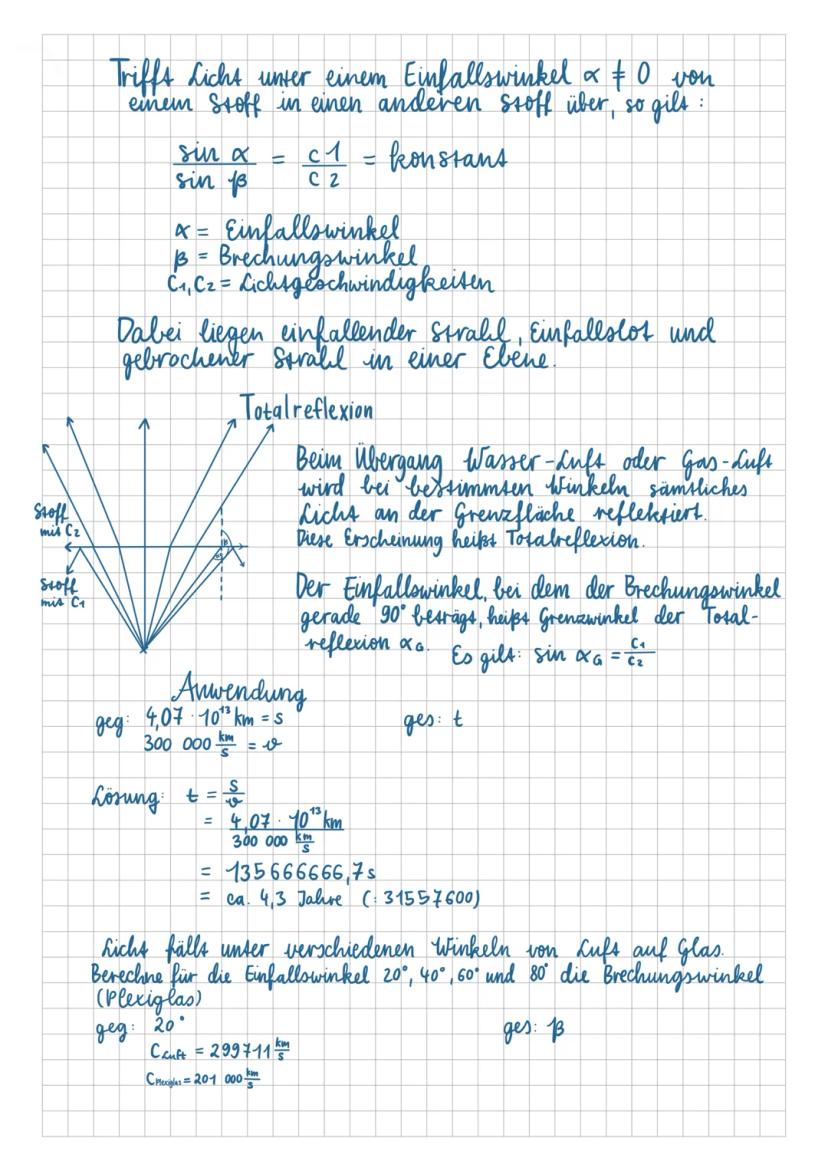 Trifft Licht unter einem Einfallswinkel α ≠ 0 von
einem Stoff in einen anderen Stoff über, so gilt:
sin α / sin β = c1 / c2 = konstant
α = Einfallswinkel
β = Brechungswinkel
C1, C2 = Lichtgeschwindigkeiten
Dabei liegen einfallender Strahl, Einfallslot und
gebrochener Strahl in einer Ebene.
Totalreflexion
Stoff
mit C2
Stoff
mit C1
Beim Übergang Wasser-Luft oder Gas-Luft
wird bei bestimmten Winkeln sämtliches
Licht an der Grenzfläche reflektiert.
Diese Erscheinung heißt Totalreflexion.
Der Einfallswinkel, bei dem der Brechungswinkel
gerade 90° beträgt, heißt Grenzwinkel der Total-
reflexion αG. Es gilt: sin αG = C1/C2
Anwendung
geg: 4,07 · 10¹³ km = s ges: t
300 000 km/s = v
Lösung: t = s/v
= 4,07 · 10¹³ km / 300 000 km/s
= 135666666,7s
= ca. 4,3 Jahre (: 31557600)
Licht fällt unter verschiedenen Winkeln von Luft auf Glas.
Berechne für die Einfallswinkel 20°, 40°, 60° und 80° die Brechungswinkel
(Plexiglas)
geg: 20° ges: β
CLuft = 299711 km/s
CPlexiglas = 201 000 km/s